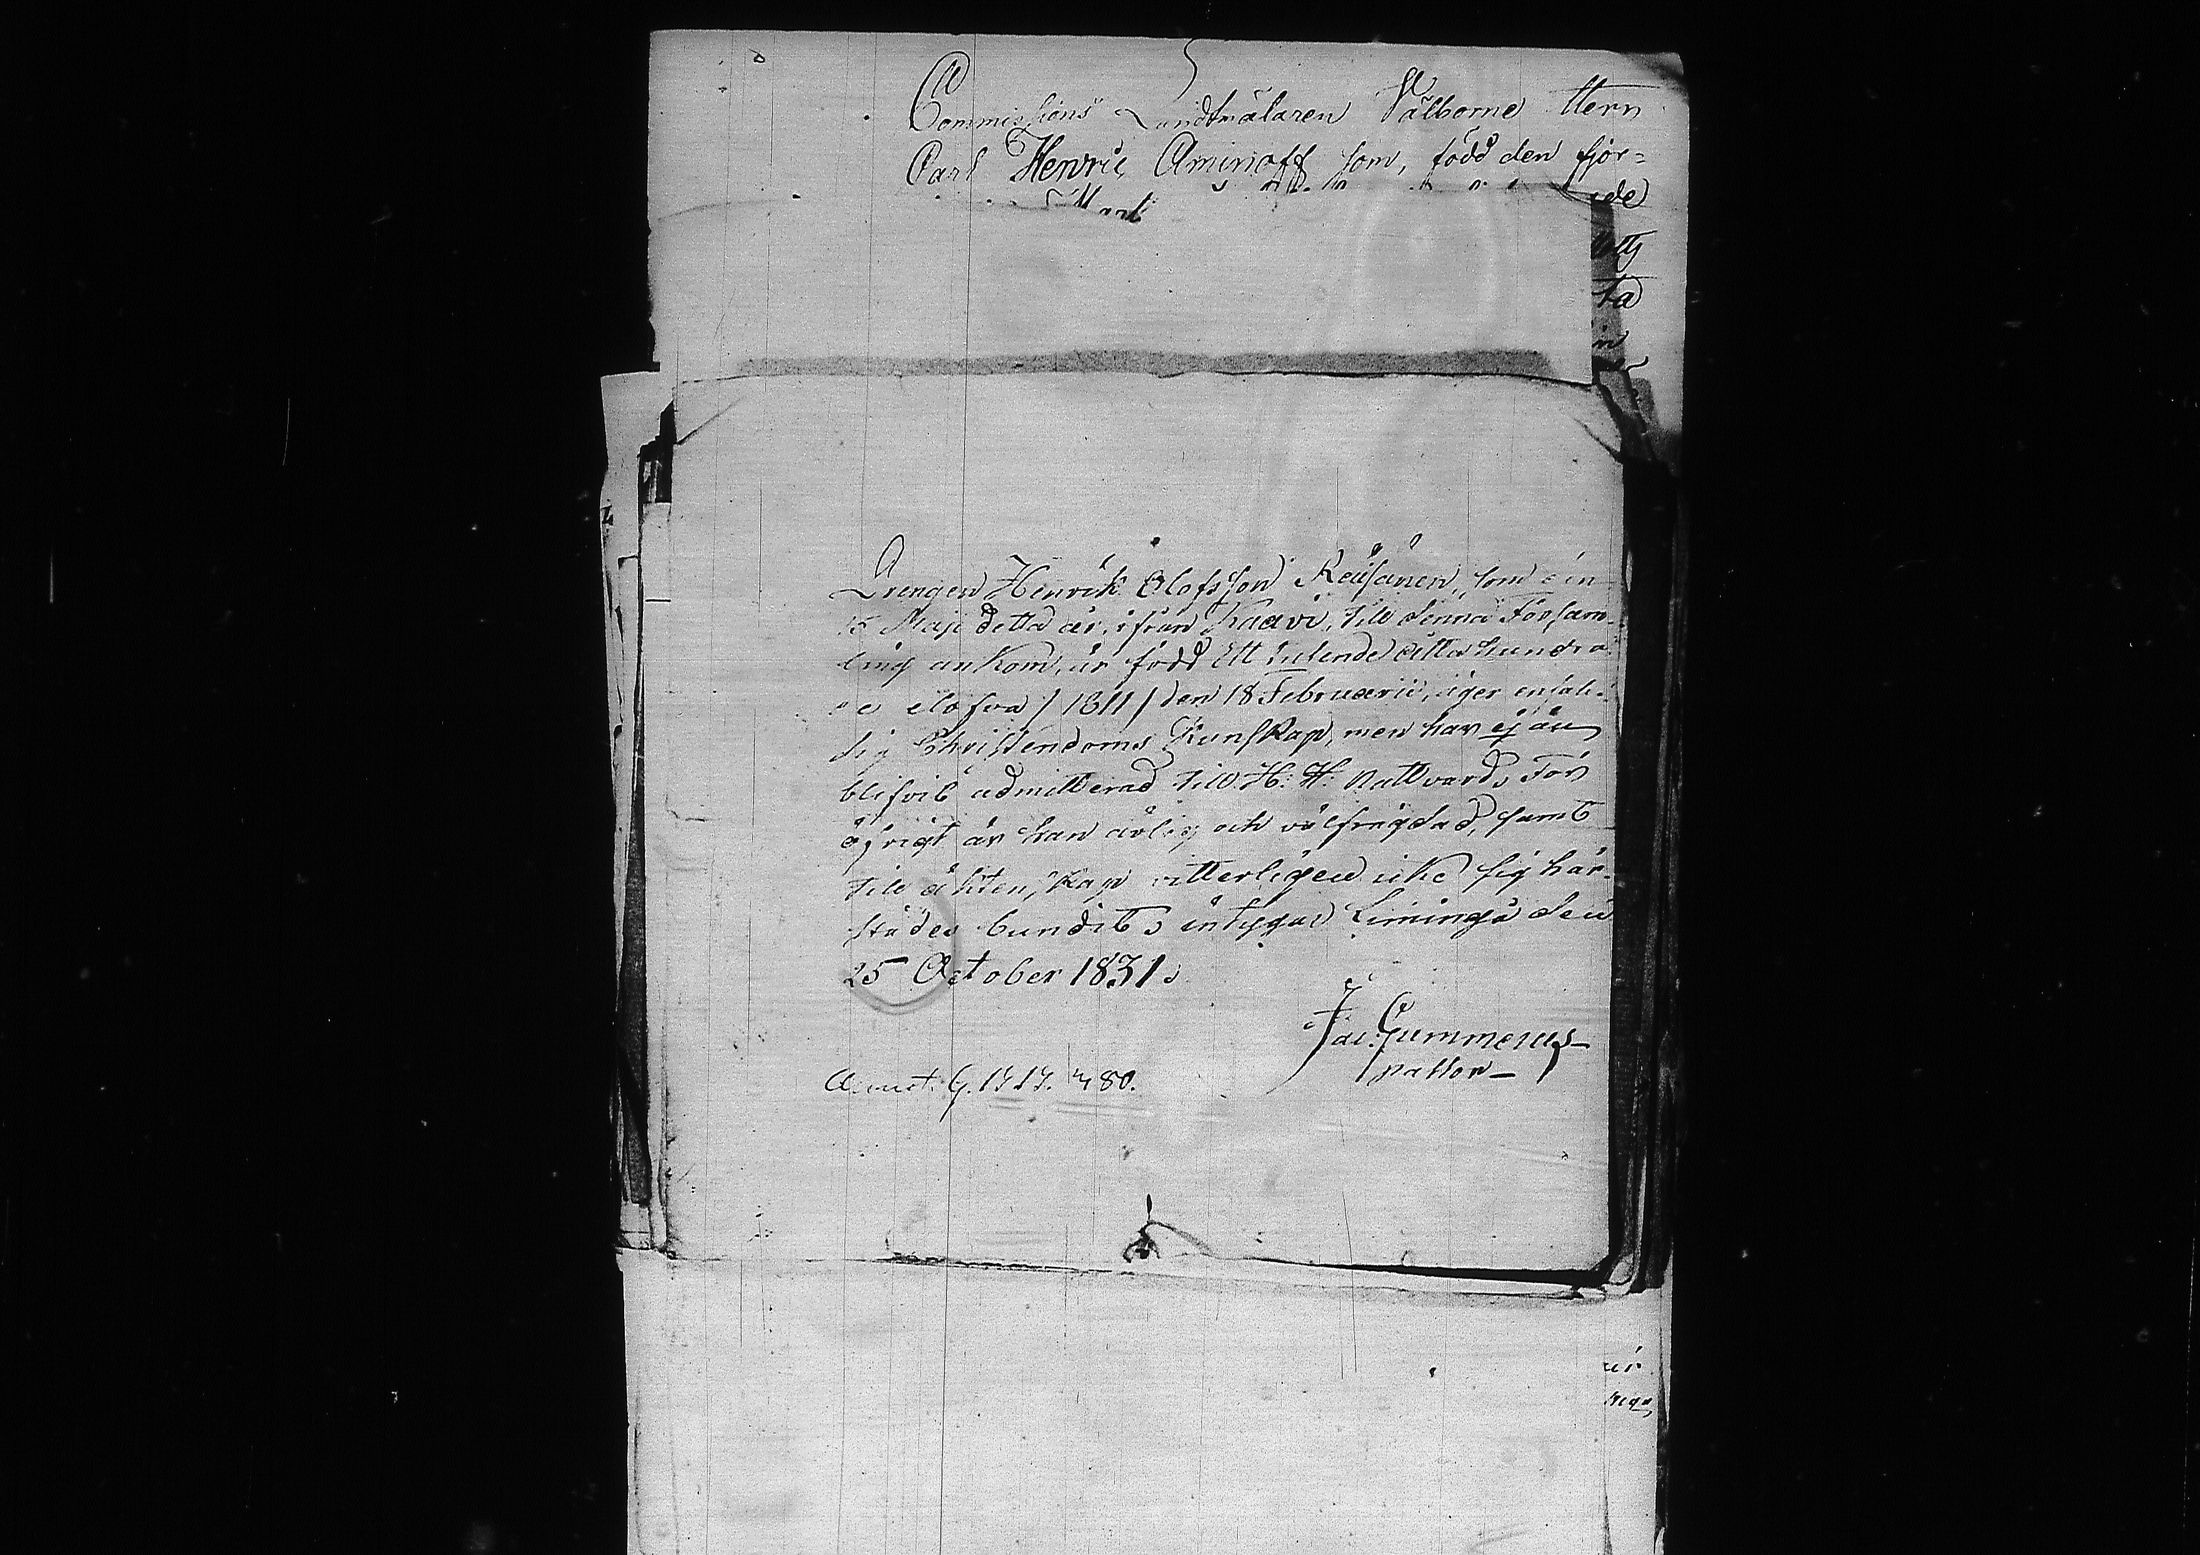 Commissions Landtmälaren Välborne Herr
Carl Henric Aminoff som, född den fjor=
de
Mart
ta
Drengen Henrik Olofsson Räisänen, som den
15 Maji detta år, ifrån Kaavi, till denna Församling
ling ankom, är född Ett tusende åtta hundra
de elofva / 1811 / den 18 Februarii, äger enfal-
dig Christendoms Kunskap, men har ej än
blifvit admitterad till H. H. Nattvard, För
öfrigt är han ärlig och välfrägdad, samt
till äktenskap vitterligen icke sig här-
städes bundit, intygar Limingå den
25 October 1831.
Jac. Gummerus
pastor